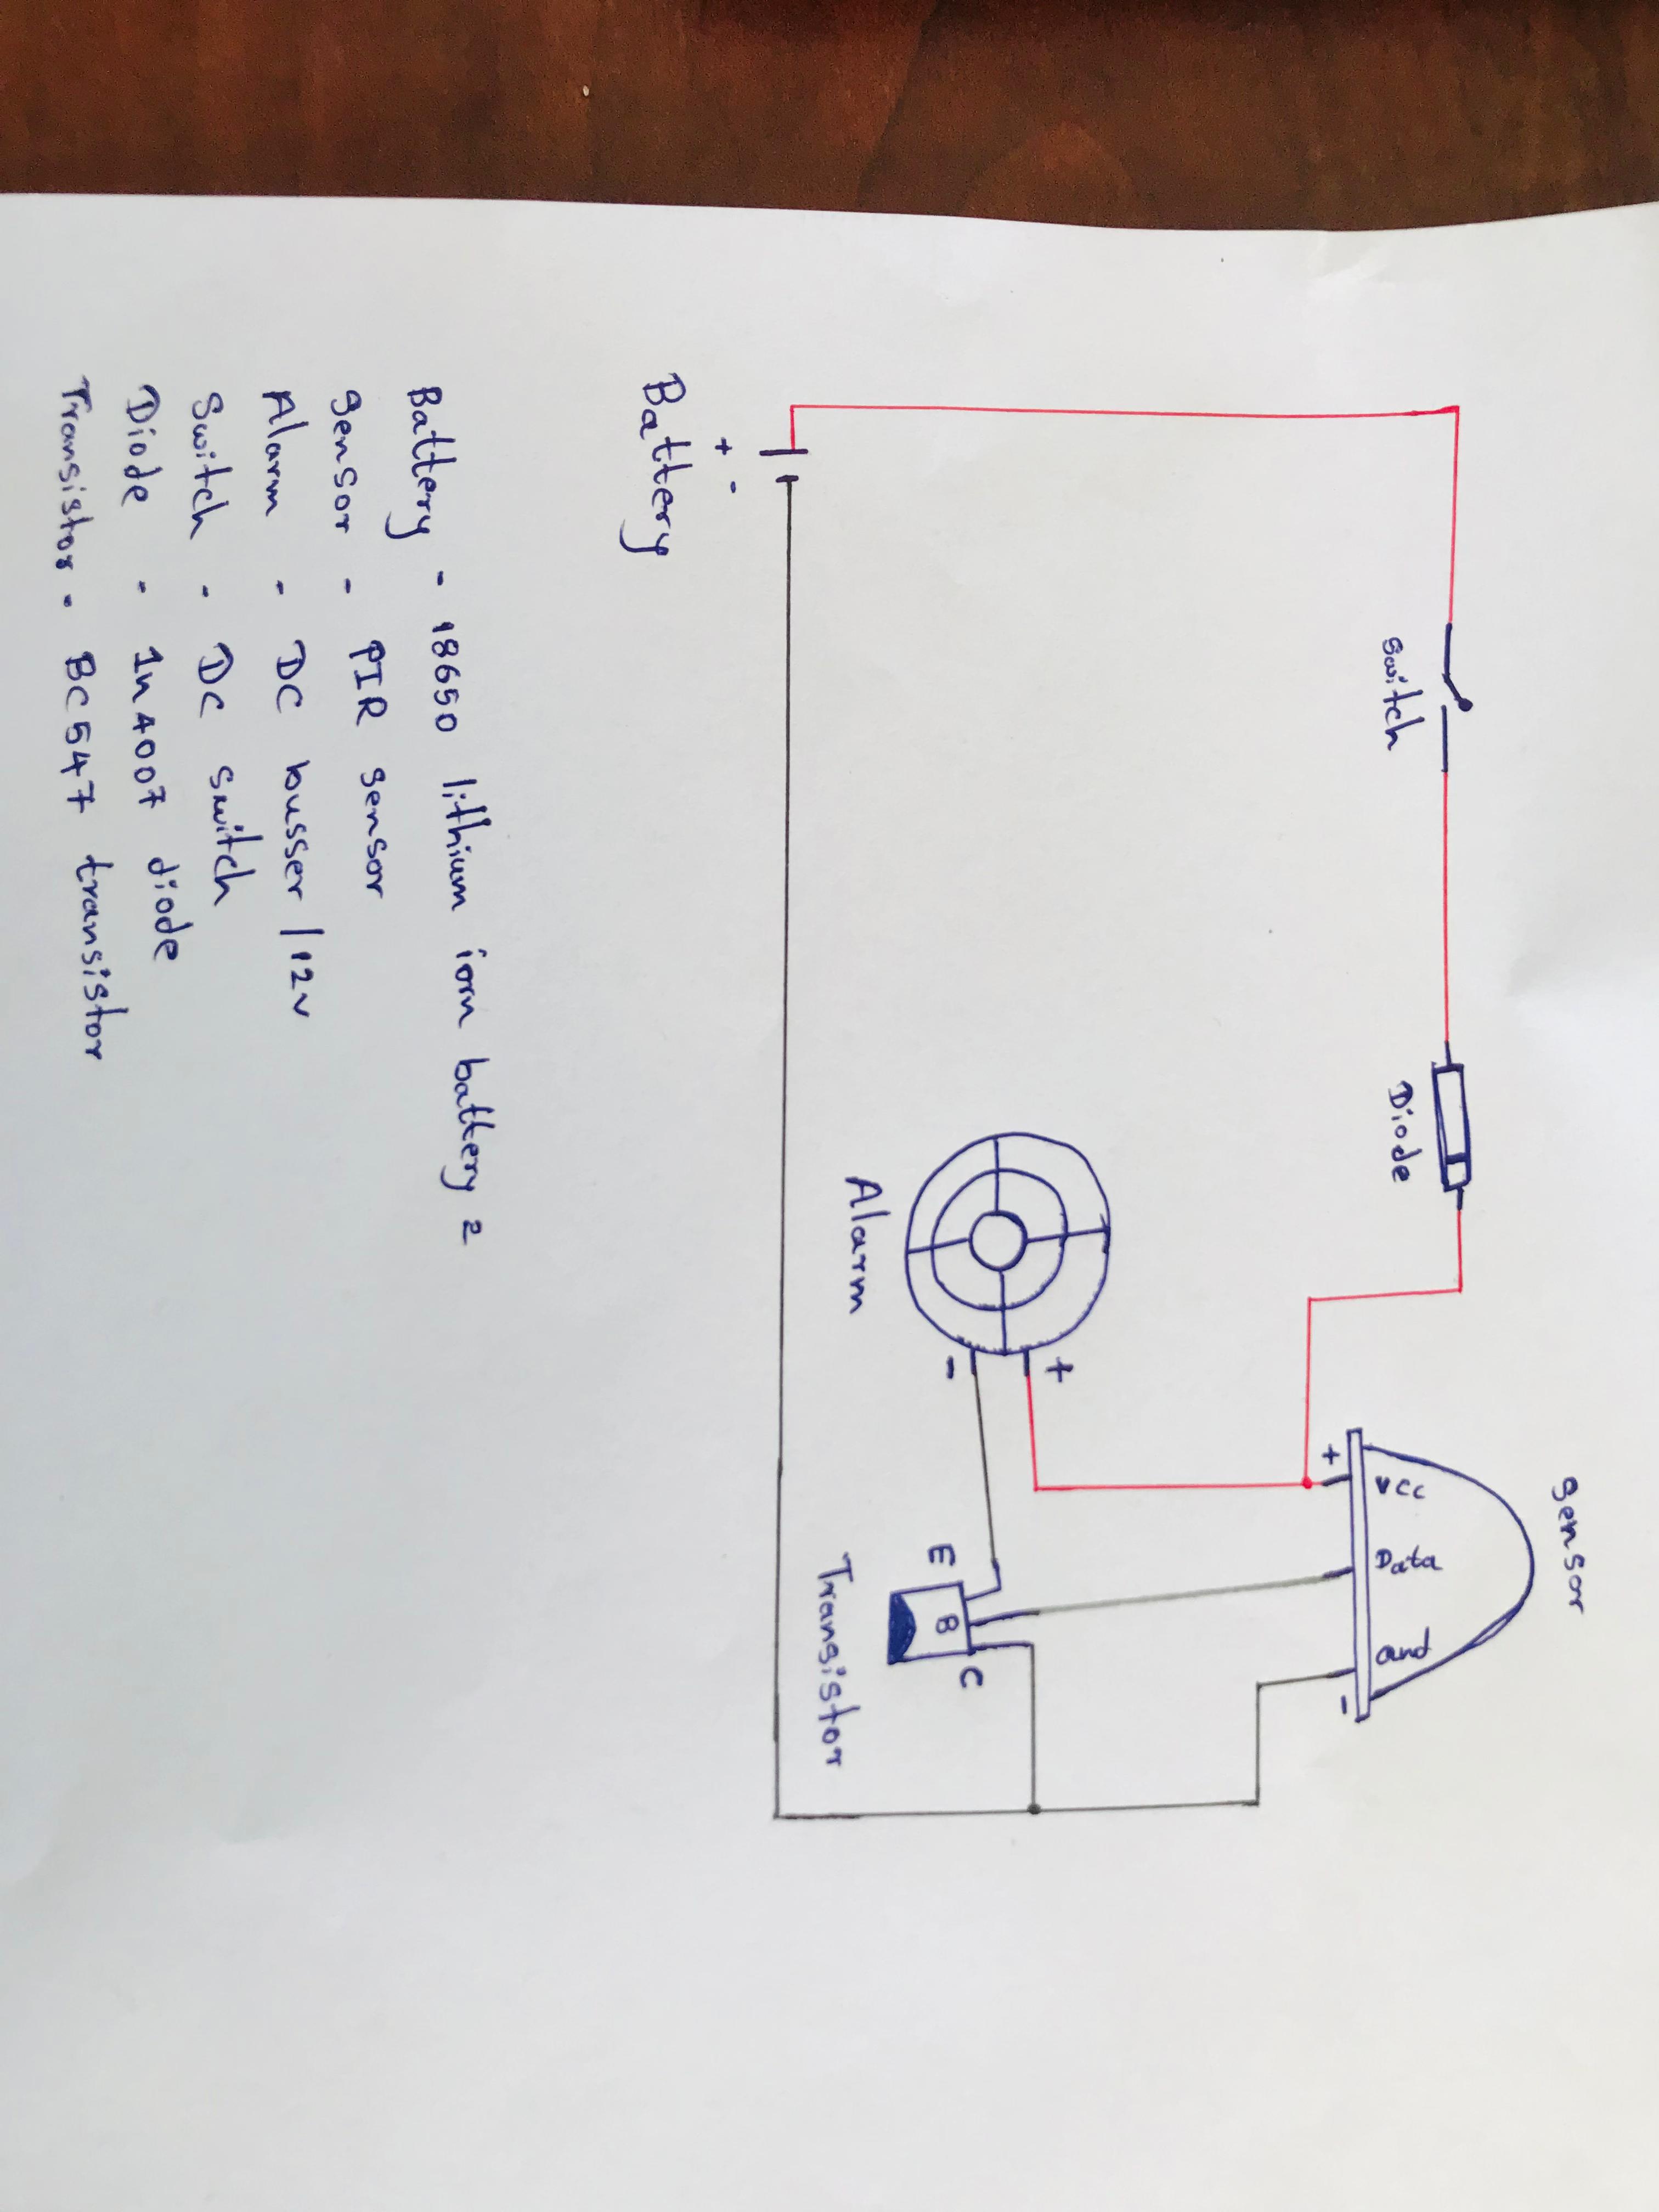 Sensor
Switch
Diode
+
VCC
Data
Gnd
-
+
-
Alarm
E
B
C
Transistor
+ -
Battery
Battery - 18650 lithium iorn battery 2
Sensor - PIR Sensor
Alarm - DC busser /12v
Switch - DC switch
Diode - 1n4007 diode
Transistor - BC547 transistor